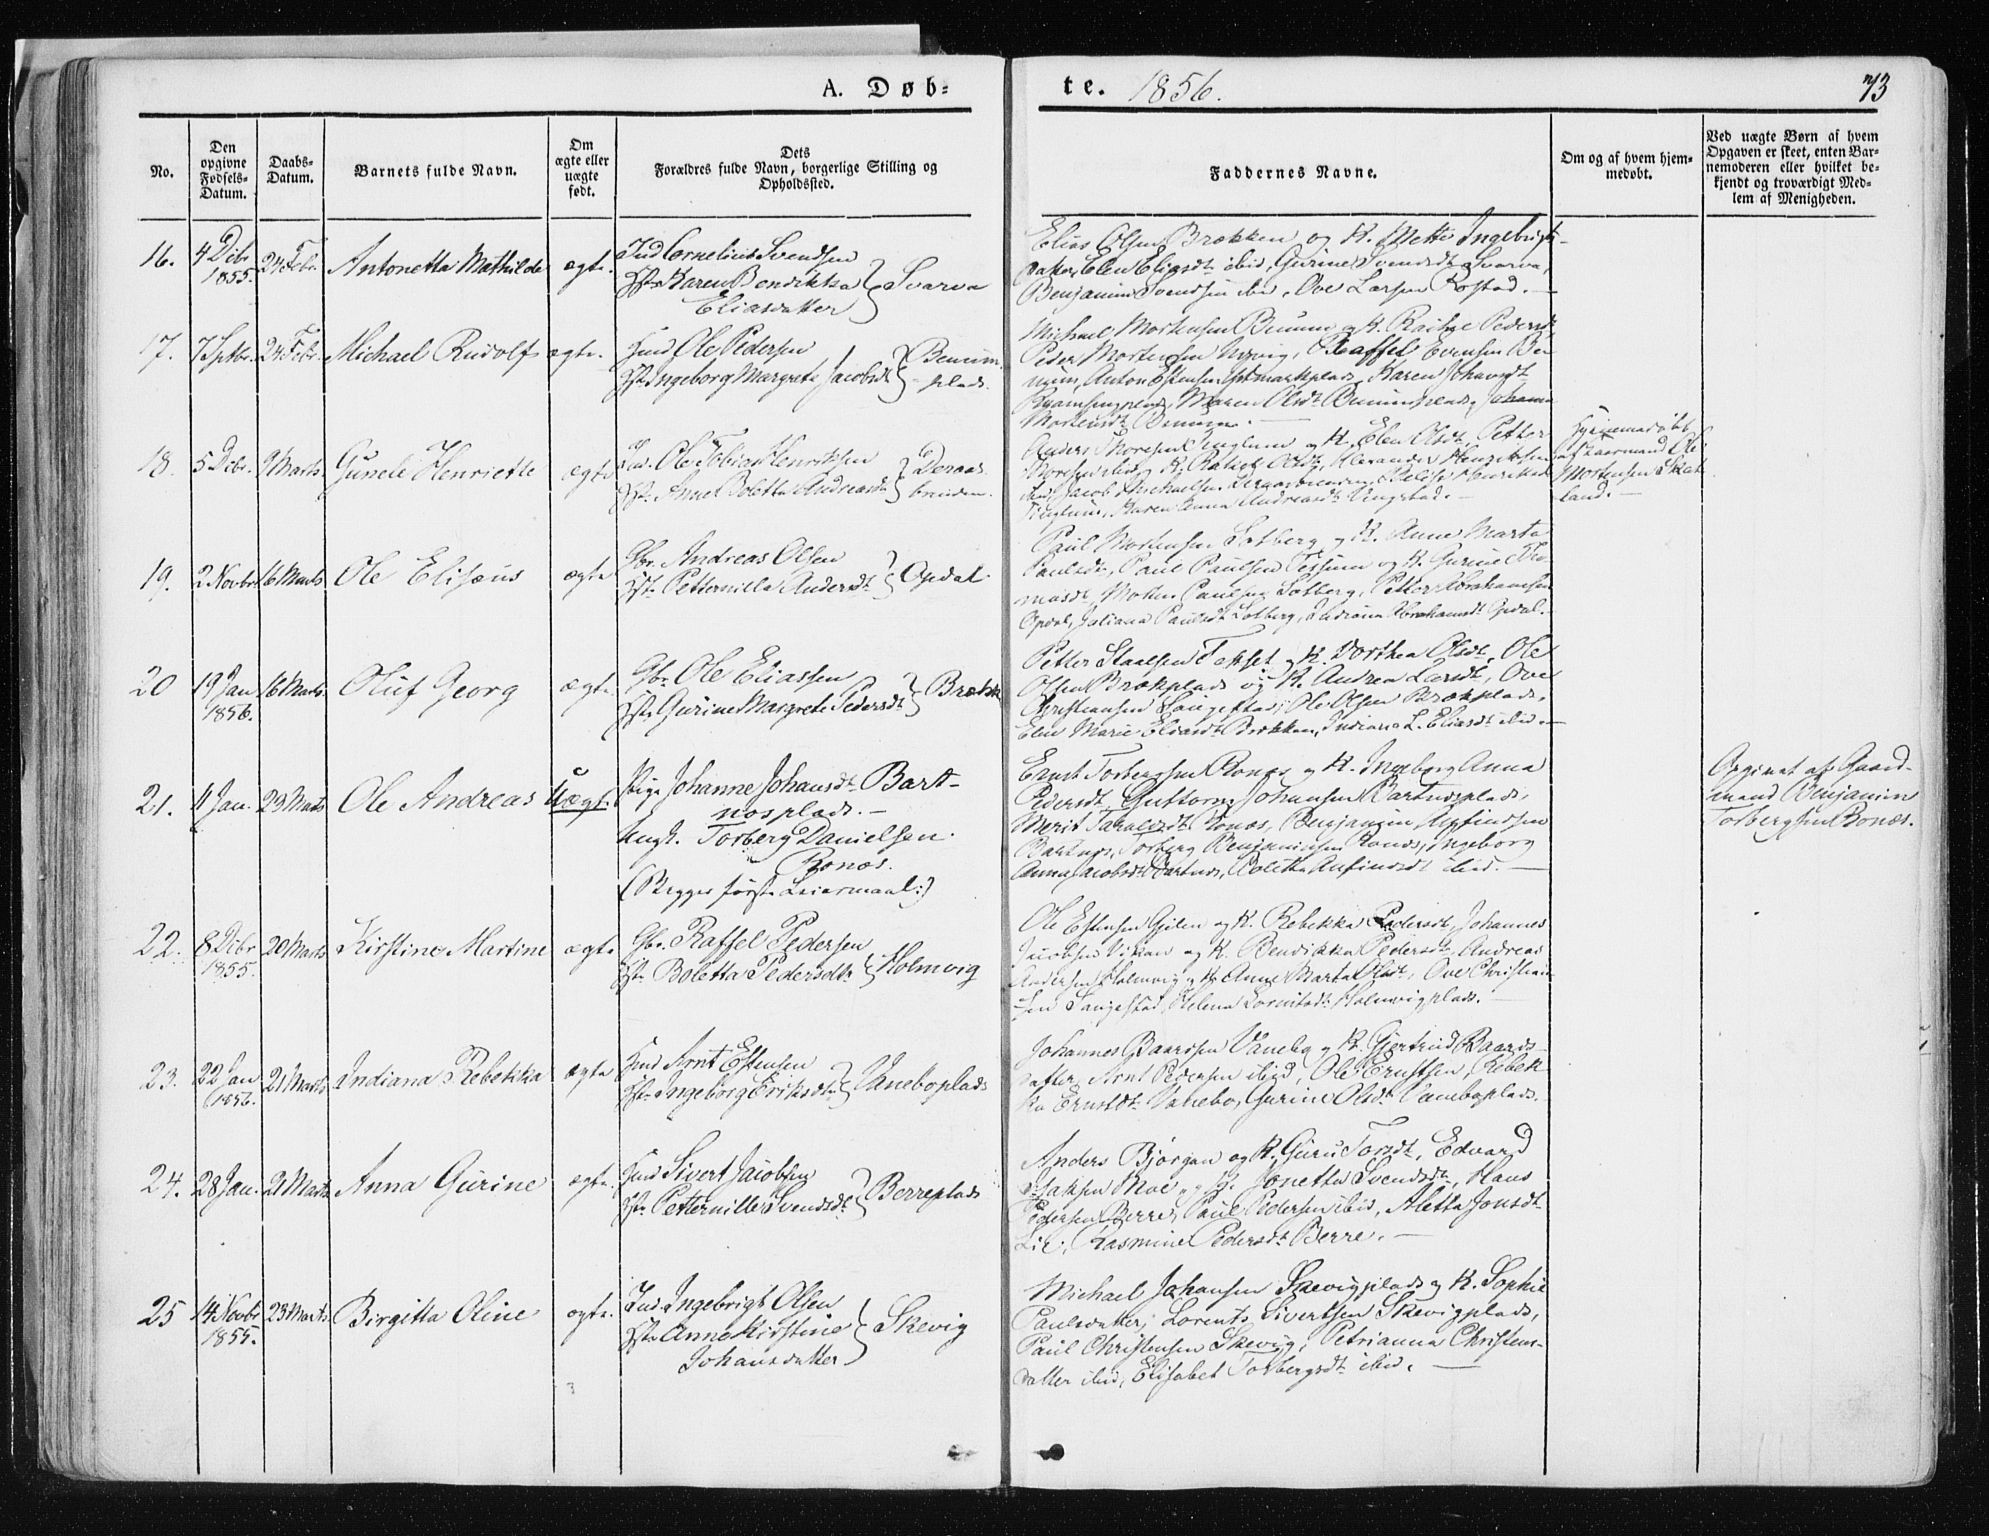 A. Døb-
te. 1856.
73
No.
Den
opgivne
Fødsels-
Datum.
Daabs-
Datum.
Barnets fulde Navn.
Om
ægte eller
uægte
født.
Dets
Forældres fulde Navn, borgerlige Stilling og
Opholdssted.
Faddernes Navne.
Om og af hvem hjem-
medøbt.
Ved uægte Børn af hvem
Opgaven er skeet, enten Bar-
nemoderen eller hvilket be-
kjendt og troværdigt Med-
lem af Menigheden.
16.
4 Dcbr
1855.
24 Febr.
Antonetta Mathilde
ægte.
Ind Cornelius Svendsen
Hst. Karen Bendikka
Eliasdatter
Svarva
Elias Olsen Brækken og K. Mette Ingebrigts-
datter, Elen Eliasdt ibid, Gurine Svendsdt Svarva,
Benjamin Svendsen ibid, Ove Larsen Rostad.
17.
7 Sptbr.
24 Febr.
Michael Rudolf
ægte.
Hmd Ole Pedersen
Hst. Ingeborg Margrete Jacobsdt
Benum-
plads.
Michael Mortensen Benum og K. Pedersdt
Peder Mortensen Raffel Evensen Be-
num, Anton Estensen Karen
Maren Olsdt Benumsplads, Johanna
Mortensdt Benum.
18.
5 Dcbr.
9 Marts
Gunele Henriette
ægte
Ind. Ole Tobias Henriksen
Hst. Anne Boletta Andreasdt
Anders Thoresen Tinglum og K. Elen Olsdt, Petter
K. Rakel Olsdt, Alexander Henriksen
ibid, Jacob Michaelsen
Tinglum, Karen Anna Andreasdt Vingstad.
Hjemmedøbt
af Gaarmand Ole
Mortensen Skat-
land.
19.
2 Novbr
16 Marts
Ole Elisæus
ægte
Gbr. Andreas Olsen
Hst. Petternilla Andersdt
Opdal.
Paul Mortensen Solberg og K. Anne Marta
Paulsdt, Paul Paulsen Tessum og K. Gurine Tho-
masdt, Paulsen Solberg, Petter Abrahamsen
Opdal, Juliana Paulsdt Solberg, Indiana Abrahamsdt Opdal.
20
19 Jan
1856.
16 Marts
Oluf Georg
ægte.
Gbr. Ole Eliassen
Hst. Gurine Margrete Pedersdt
Bræk
Petter Staalsen Tesset og K. Dorthea Olsdt, Ole
Olsen Brækplads og K. Andrea Larsdt, Ove
Christiansen Langestad, Ole Olsen Brækplads,
Elen Marie Eliasdt Brækken, Indiana L. Eliasdt ibid.
21.
11 Jan.
23 Marts
Ole Andreas
Uægt.
Pige Johanne Johansdt Bart-
nosplads.
Ungk. Torberg Danielsen
Ronæs.
(Begges første Leiermaal:)
Ernst Torbergsen Ronæs og K. Ingeborg Anna
Pedersdt, Guttorm Johansen Bartnesplads,
Merit Ronæs, Benjamin Anfindsen
Bartnes, Torberg Benjaminsen Ronæs, Ingeborg
Anna Jacobsdt Bartnes, Boletta Anfinsdt ibid.
Opgivet af Gaard-
mand Benjamin
Torbergsen Ronæs.
22.
8 Dcbr
1855.
20 Marts
Kirstine Martine
ægte
Gbr. Raffel Pedersen
Hst. Boletta Pedersdtr
Holmvig
Ole Estensen Gilen og K. Rebekka Pedersdt, Johannes
Jacobsen Vikan og K. Bendikka Pedersdt, Andreas
Andersen Holmvig og K. Anne Marta Olsdt, Ove Christian-
sen Langestad, Helena Holmvigplads.
23.
22 Jan
1856.
21 Marts
Indiana Rebekka
ægte
Hmd Arnt Estensen
Hst. Ingeborg Eriksdtr
Vaneboplads
Johannes Baardsen Vanebo og K. Gjertrud Baards-
datter, Arnt Pedersen ibid, Ole Ernstsen, Rebek-
ka Ernstdt Vanebo, Gurine Olsdt Vaneboplads.
24.
28 Jan.
21 Marts
Anna Gurine
ægte.
Hmd Sivert Jacobsen
Hst. Petternille Svendsdt
Berreplads
Anders Bjørgan og K. Guru Torsdt, Edvard
Isaksen Moe og K. Jonetta Svendsdt, Hans
Pedersen Berre, Paul Pedersen ibid, Aletta Jonsdt
Lie, Rasmine Pedersdt Berre.
25
14 Novbr
1855.
23 Marts
Birgitta Oline
ægte.
Ind. Ingebrigt Olsen
Hst. Anne Kirstine
Johansdatter
Skevig
Michael Johansen Skevigplads og K. Sophie
Paulsdatter, Lorents Sivertsen Skevigplads,
Paul Christensen Skevig, Petrianna Christens-
datter ibid, Elisabet Torbergsdt ibid.